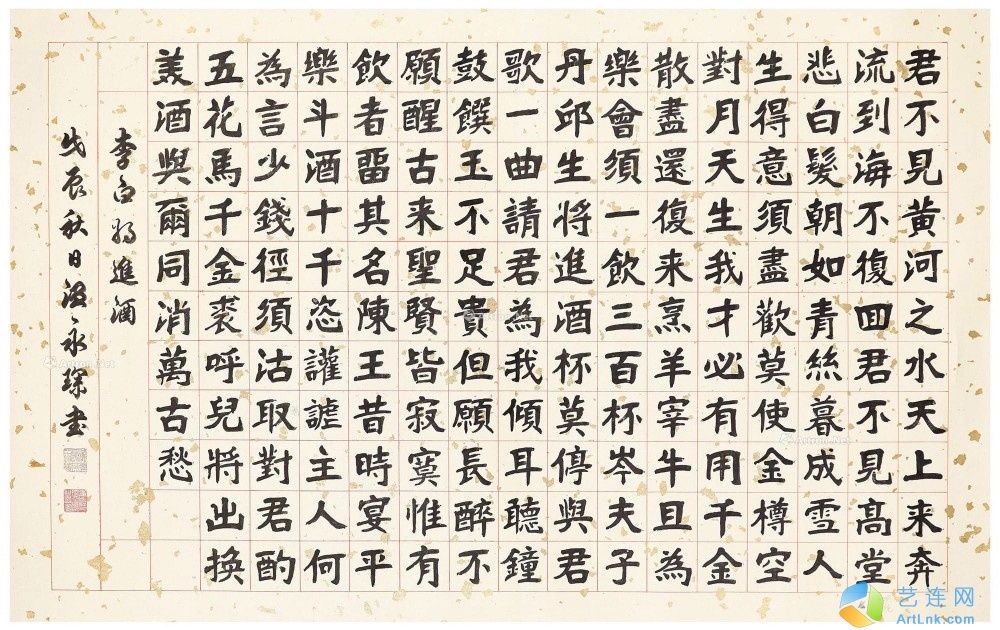 君不見黄河之水天上来奔
流到海不復囬君不見高堂
悲白髮朝如青絲暮成雪人
生得意須盡歡莫使金樽空
對月天生我才必有用千金
散盡還復来烹羊宰牛且為
樂會須一飲三百杯岑夫子
丹邱生將進酒杯莫停與君
歌一曲請君為我傾耳聽鐘
鼓饌玉不足貴但願長醉不
願醒古来聖賢皆寂寞惟有
飲者畱其名陳王昔時宴平
樂斗酒十千恣讙謔主人何
為言少錢徑須沽取對君酌
五花馬千金裘呼兒將出換
美酒與爾同消萬古愁
李白將進酒
戊辰秋日永琛書
艺连网
ArtLnk.com